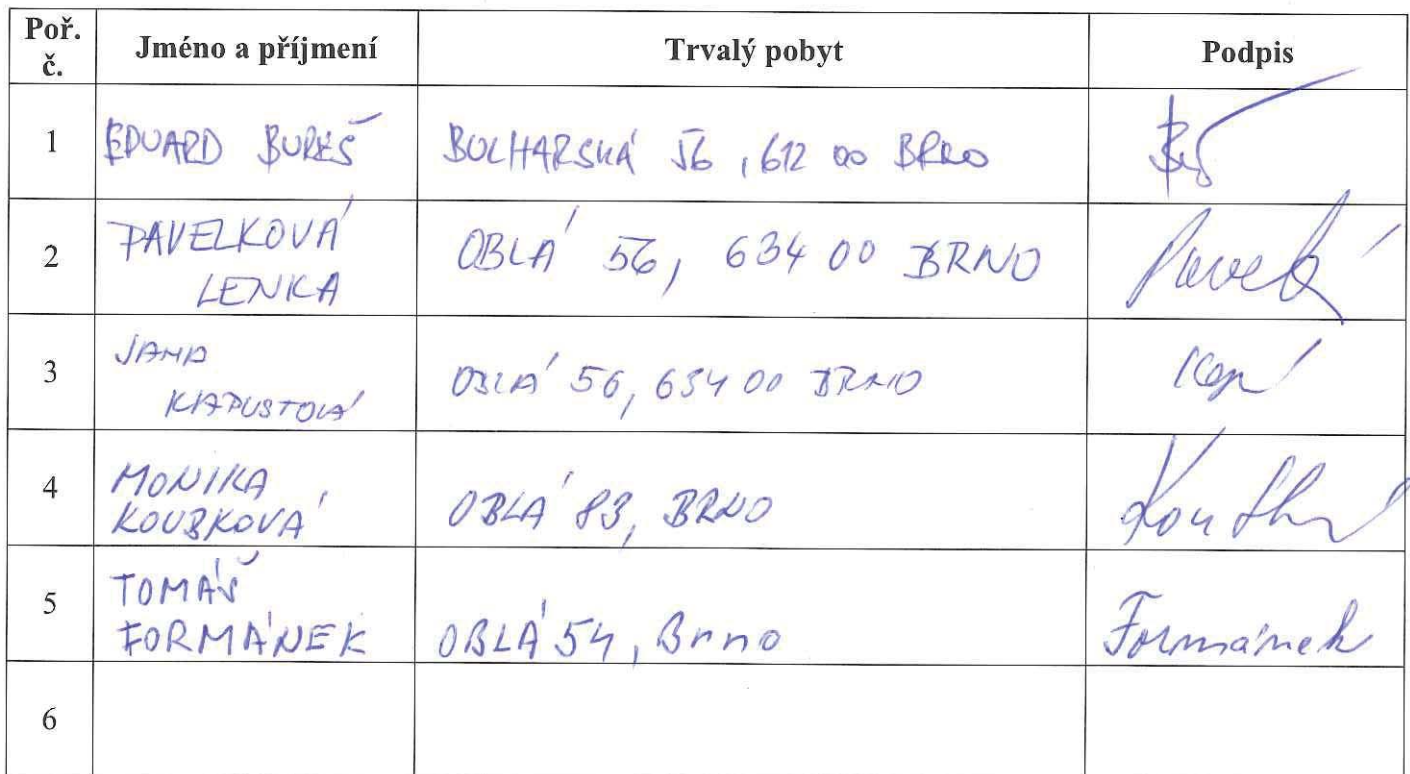 Poř. č. Jméno a příjmení Trvalý pobyt Podpis
1 EDUARD BUREŠ BULHARSKÁ 56, 612 00 BRNO
2 PAVELKOVÁ LENKA OBLÁ 56, 634 00 BRNO
3 JANA KAPUSTOVÁ OBLÁ 56, 634 00 BRNO
4 MONIKA KOUBKOVÁ OBLÁ 83, BRNO
5 TOMÁŠ FORMÁNEK OBLÁ 54, Brno Formánek
6